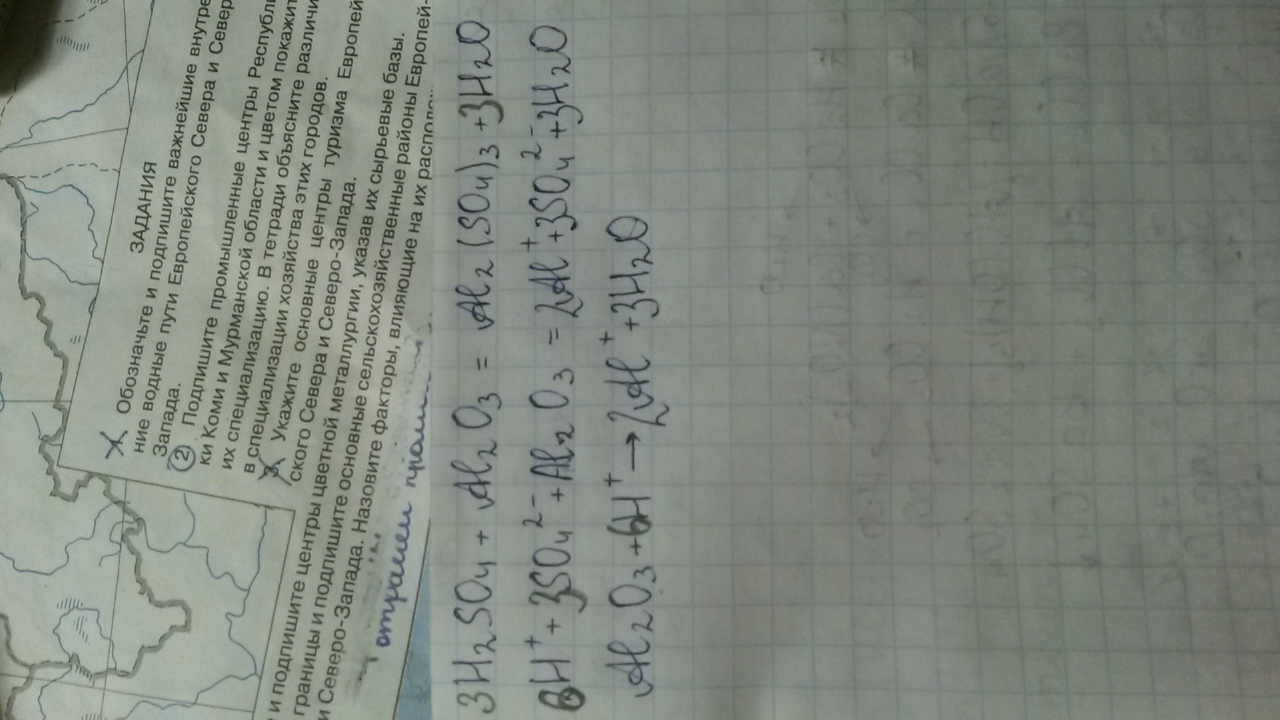 ЗАДАНИЯ
Обозначьте и подпишите важнейшие внутре
ние водные пути Европейского Севера и Север
Запада.
2 Подпишите промышленные центры Республи
ки Коми и Мурманской области и цветом покажит
их специализацию. В тетради объясните различи
в специализации хозяйства этих городов.
3. Укажите основные центры туризма Европей
ского Севера и Северо-Запада.
и подпишите центры цветной металлургии, указав их сырьевые базы.
границы и подпишите основные сельскохозяйственные районы Европей-
и Северо-Запада. Назовите факторы, влияющие на их располо
отраслей
3H₂SO₄ + Al₂O₃ = Al₂(SO₄)₃ + 3H₂O
6H⁺ + 3SO₄²⁻ + Al₂O₃ = 2Al⁺ + 3SO₄²⁻ + 3H₂O
Al₂O₃ + 6H⁺ → 2Al⁺ + 3H₂O